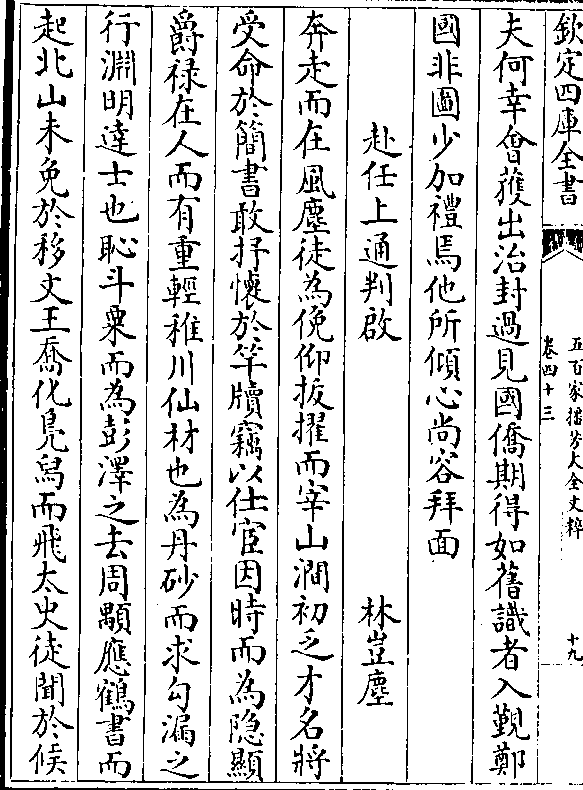 欽定四庫全書
五百家播芳大全文粹
卷四十三
十九
夫何幸會獲出治封過見國僑期得如舊識者入覲鄭
國非圖少加禮焉他所傾心尚容拜面
赴任上通判啟
林豈塵
奔走而在風塵徒為俛仰拔擢而宰山澗初乏才名將
受命於簡書敢抒懷於竿牘竊以仕宦因時而為隐顯
爵禄在人而有重輕稚川仙材也為丹砂而求勾漏之
行淵明達士也恥斗粟而為彭澤之去周顒應鶴書而
起北山未免於移文王喬化鳧舄而飛太史徒聞於候